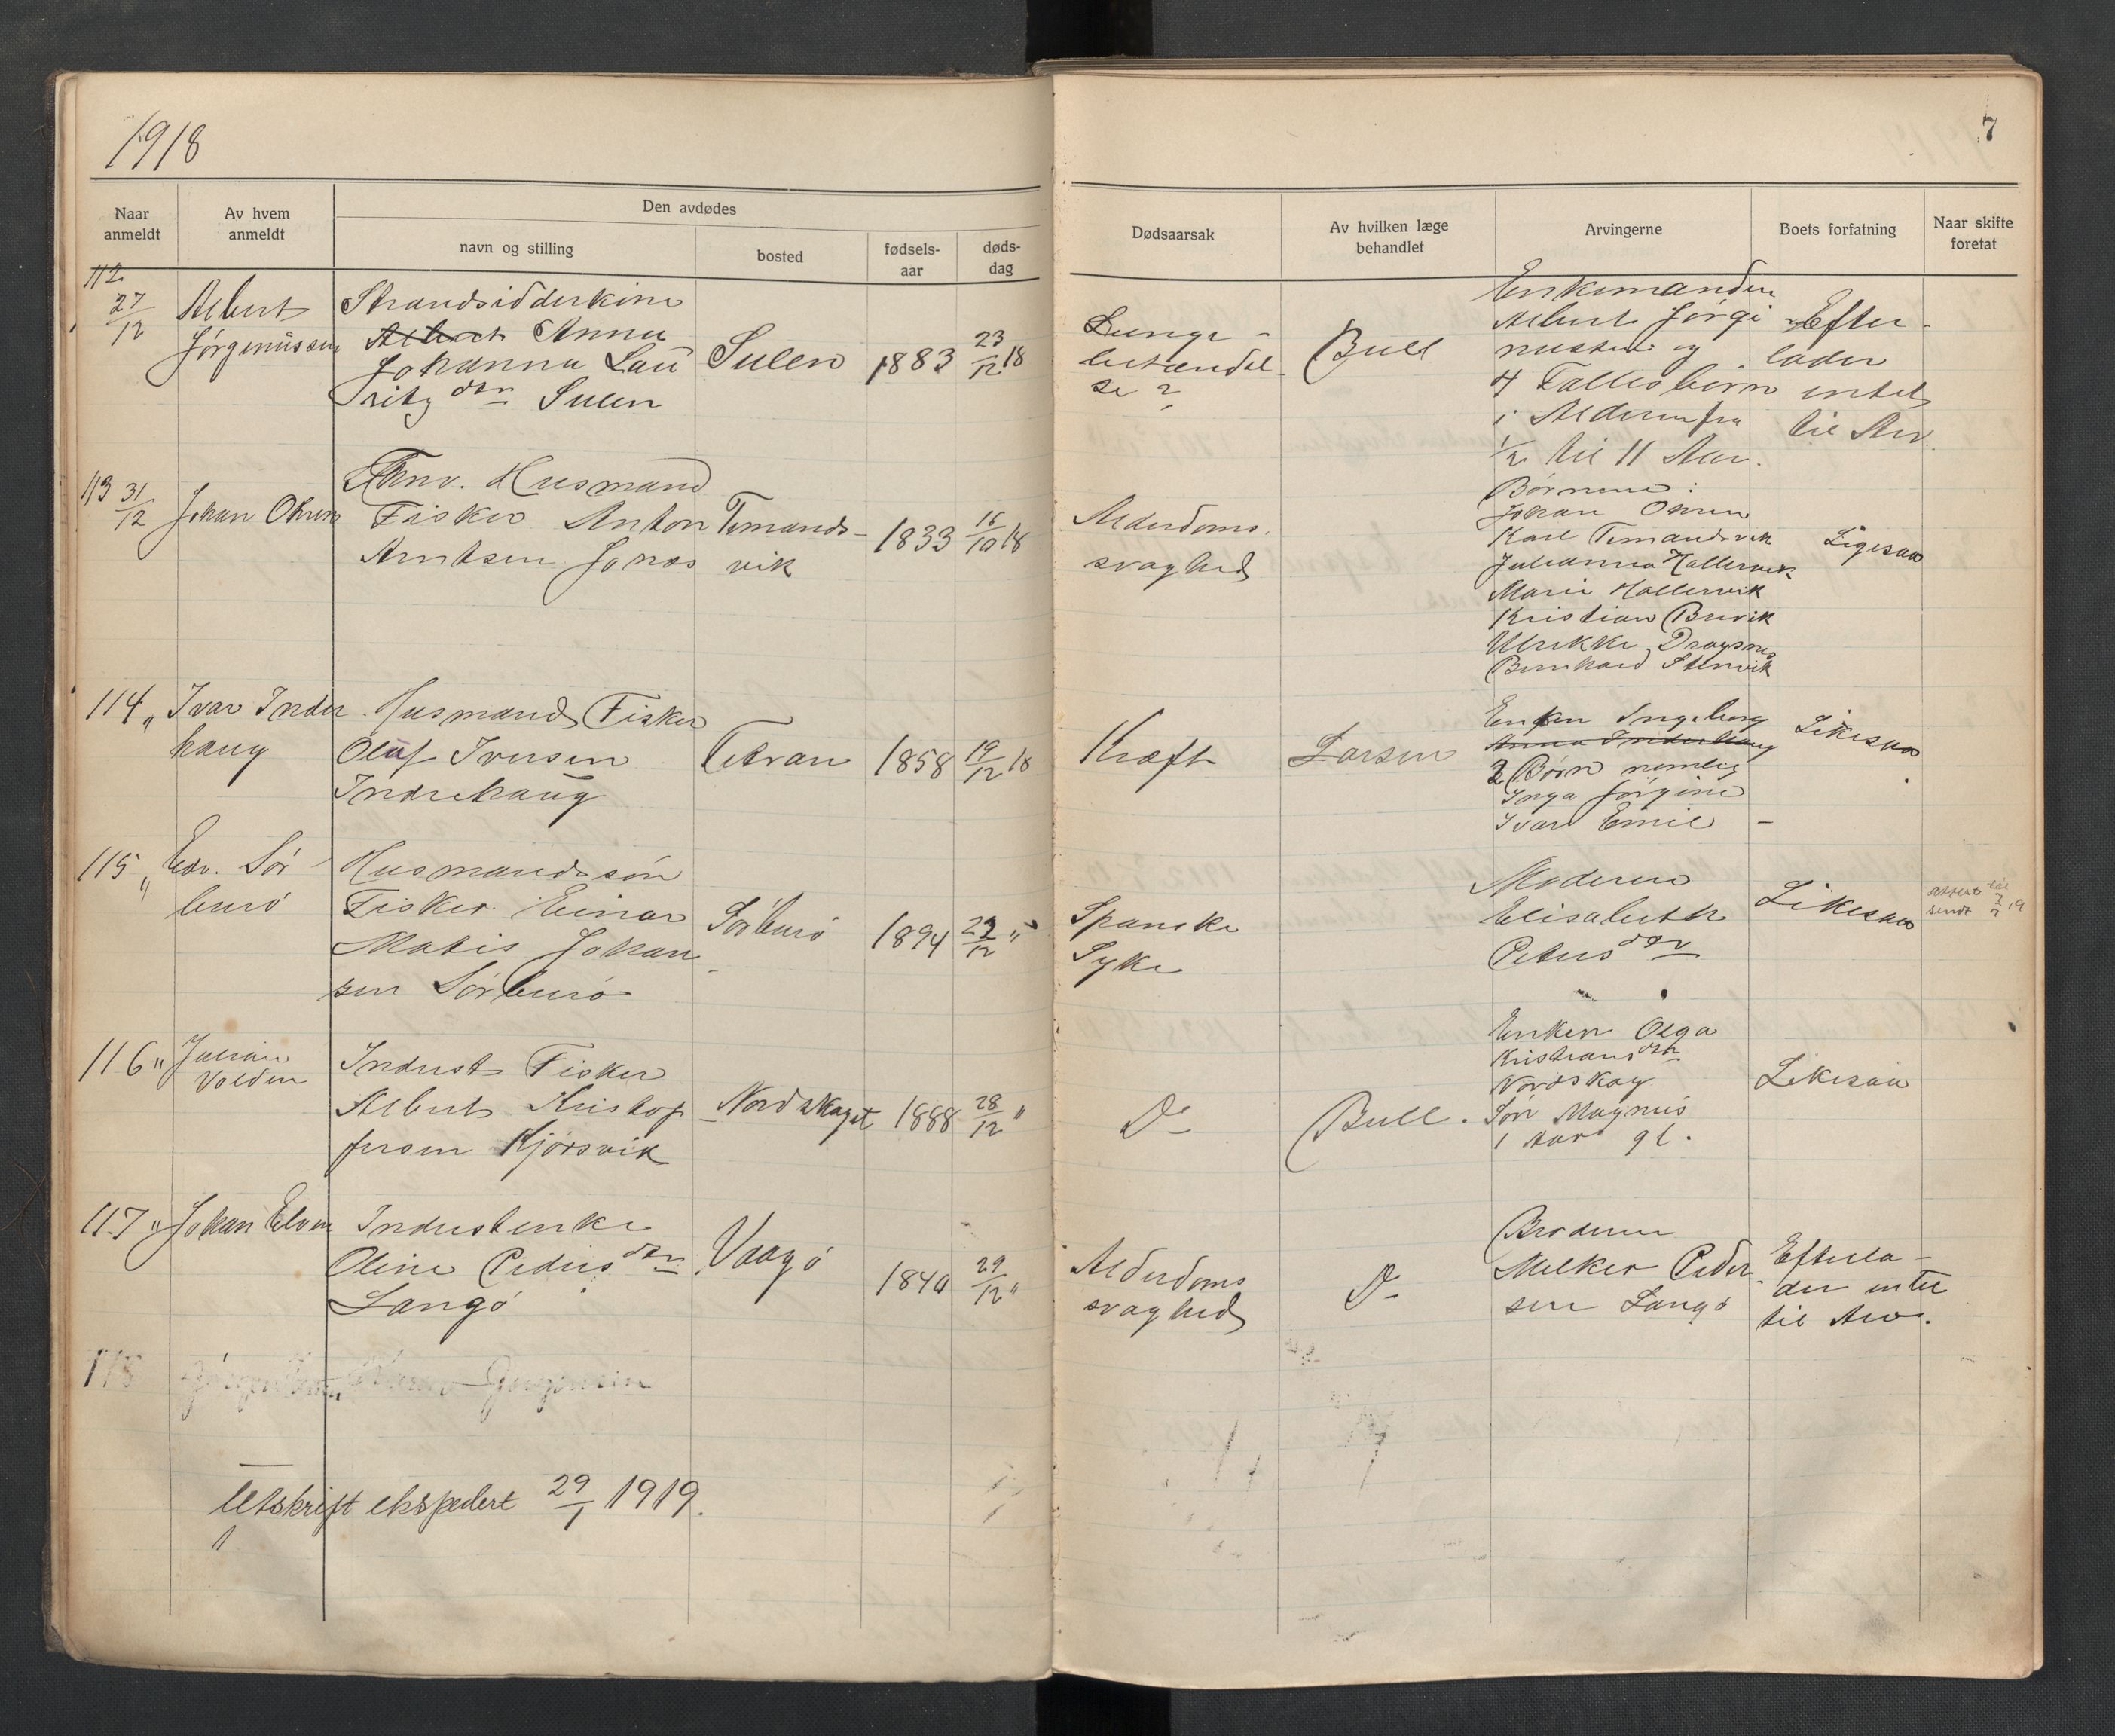 1918
7
Naar anmeldt
Av hvem anmeldt
Den avdødes
navn og stilling
bosted
fødsels-aar
døds-dag
Dødsaarsak
Av hvilken læge behandlet
Arvingerne
Boets forfatning
Naar skifte foretat
112
27/12
Albert
Jørginussen
Strandsidderkone
Albert Anna
Johanna Lau
ritz dtr Sulen
Sulen
1883
23/12 18
Lunge-
betændel-
se?
Bull
Enkemanden
Albert Jørgi
nussen og
4 Fællesbørn
i Alderen fra
1/2 til 11 Aar.
Efter-
lader
intet
til Arv.
113 31/12
Johan Ohren
Husmand
Fisker Anton
Arntsen
Temands-
vik
1833
16/10 18
Alderdoms-
svaghed
Børnene:
Johan Ohren
Karl Temandsvik
Julianna Hallervik
Marie Hallervik
Kristian Brevik
Ulrikke Dragsnes
Bernhard Stenvik
Ligesaa
114 "
Ivar Inder
haug
Husmand Fisker
Oluf Iversen
Indrehaug
Titran
1858
19/12 18
Kræft
Larsen
Enken Ingeborg
Anna Inderhaug
2 Børn nemlig
Inga Jørgine
Ivar Emil -
Likesaa
115 "
Edv. Sør
burø
Husmandssøn
Fisker Einar
Matis Johan
sen Sørburø
Sørburø
1894
22/12 "
Spanske
Syke
Moderen
Elisabeth
Petersdtr
Likesaa
sendt
116 "
Julian
Volden
Inderst Fisker
Albert Kristof
fersen Kjørsvik
Nordskaget
1888
28/12 "
Do
Bull.
Enken Olga
Kristiansdtr
Nordskag
Søn Magnus
1 Aar gl.
Likesaa
117 "
Johan Elven
Inderstenke
Oline Pedersdtr
Langø
Vaagø
1840
29/12 "
Alderdoms
svaghed
Do
Broderen
Melker Peder
sen Langø
Efterla-
der intet
til Arv.
118
Utskrift ekspedert 29/1 1919.